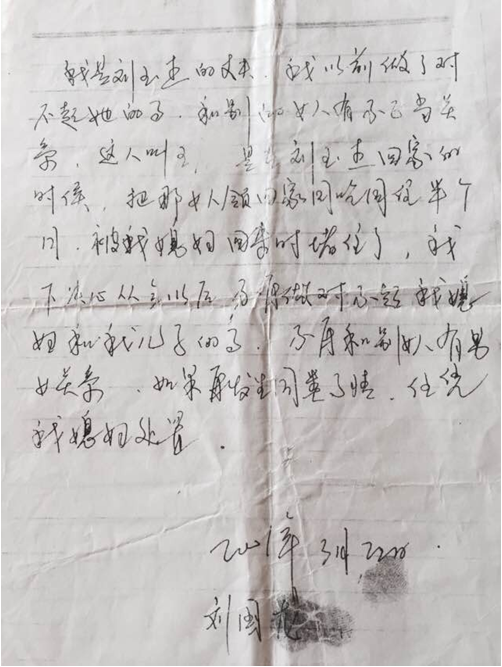 我是刘玉杰的丈夫，我以前做了对
不起她的事．和别的女人有不正当关
系，这人叫王，是在刘玉杰回家的
时候，把那女人领回家同吃同住半个
月．被我媳妇回来时堵住了，我
下决心从今以后不再做对不起我媳
妇和我儿子的事．不再和别女人有男
女关系．如果再发生同类事情．任凭
我媳妇处置．
年 3月
刘国